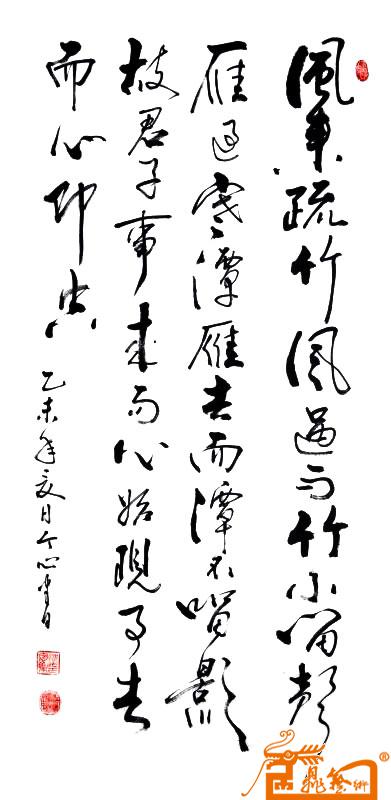 風來疏竹風過而竹不留聲
雁過寒潭雁去而潭不留影
故君子事來而心始現事去
而心即空
乙未年夏日